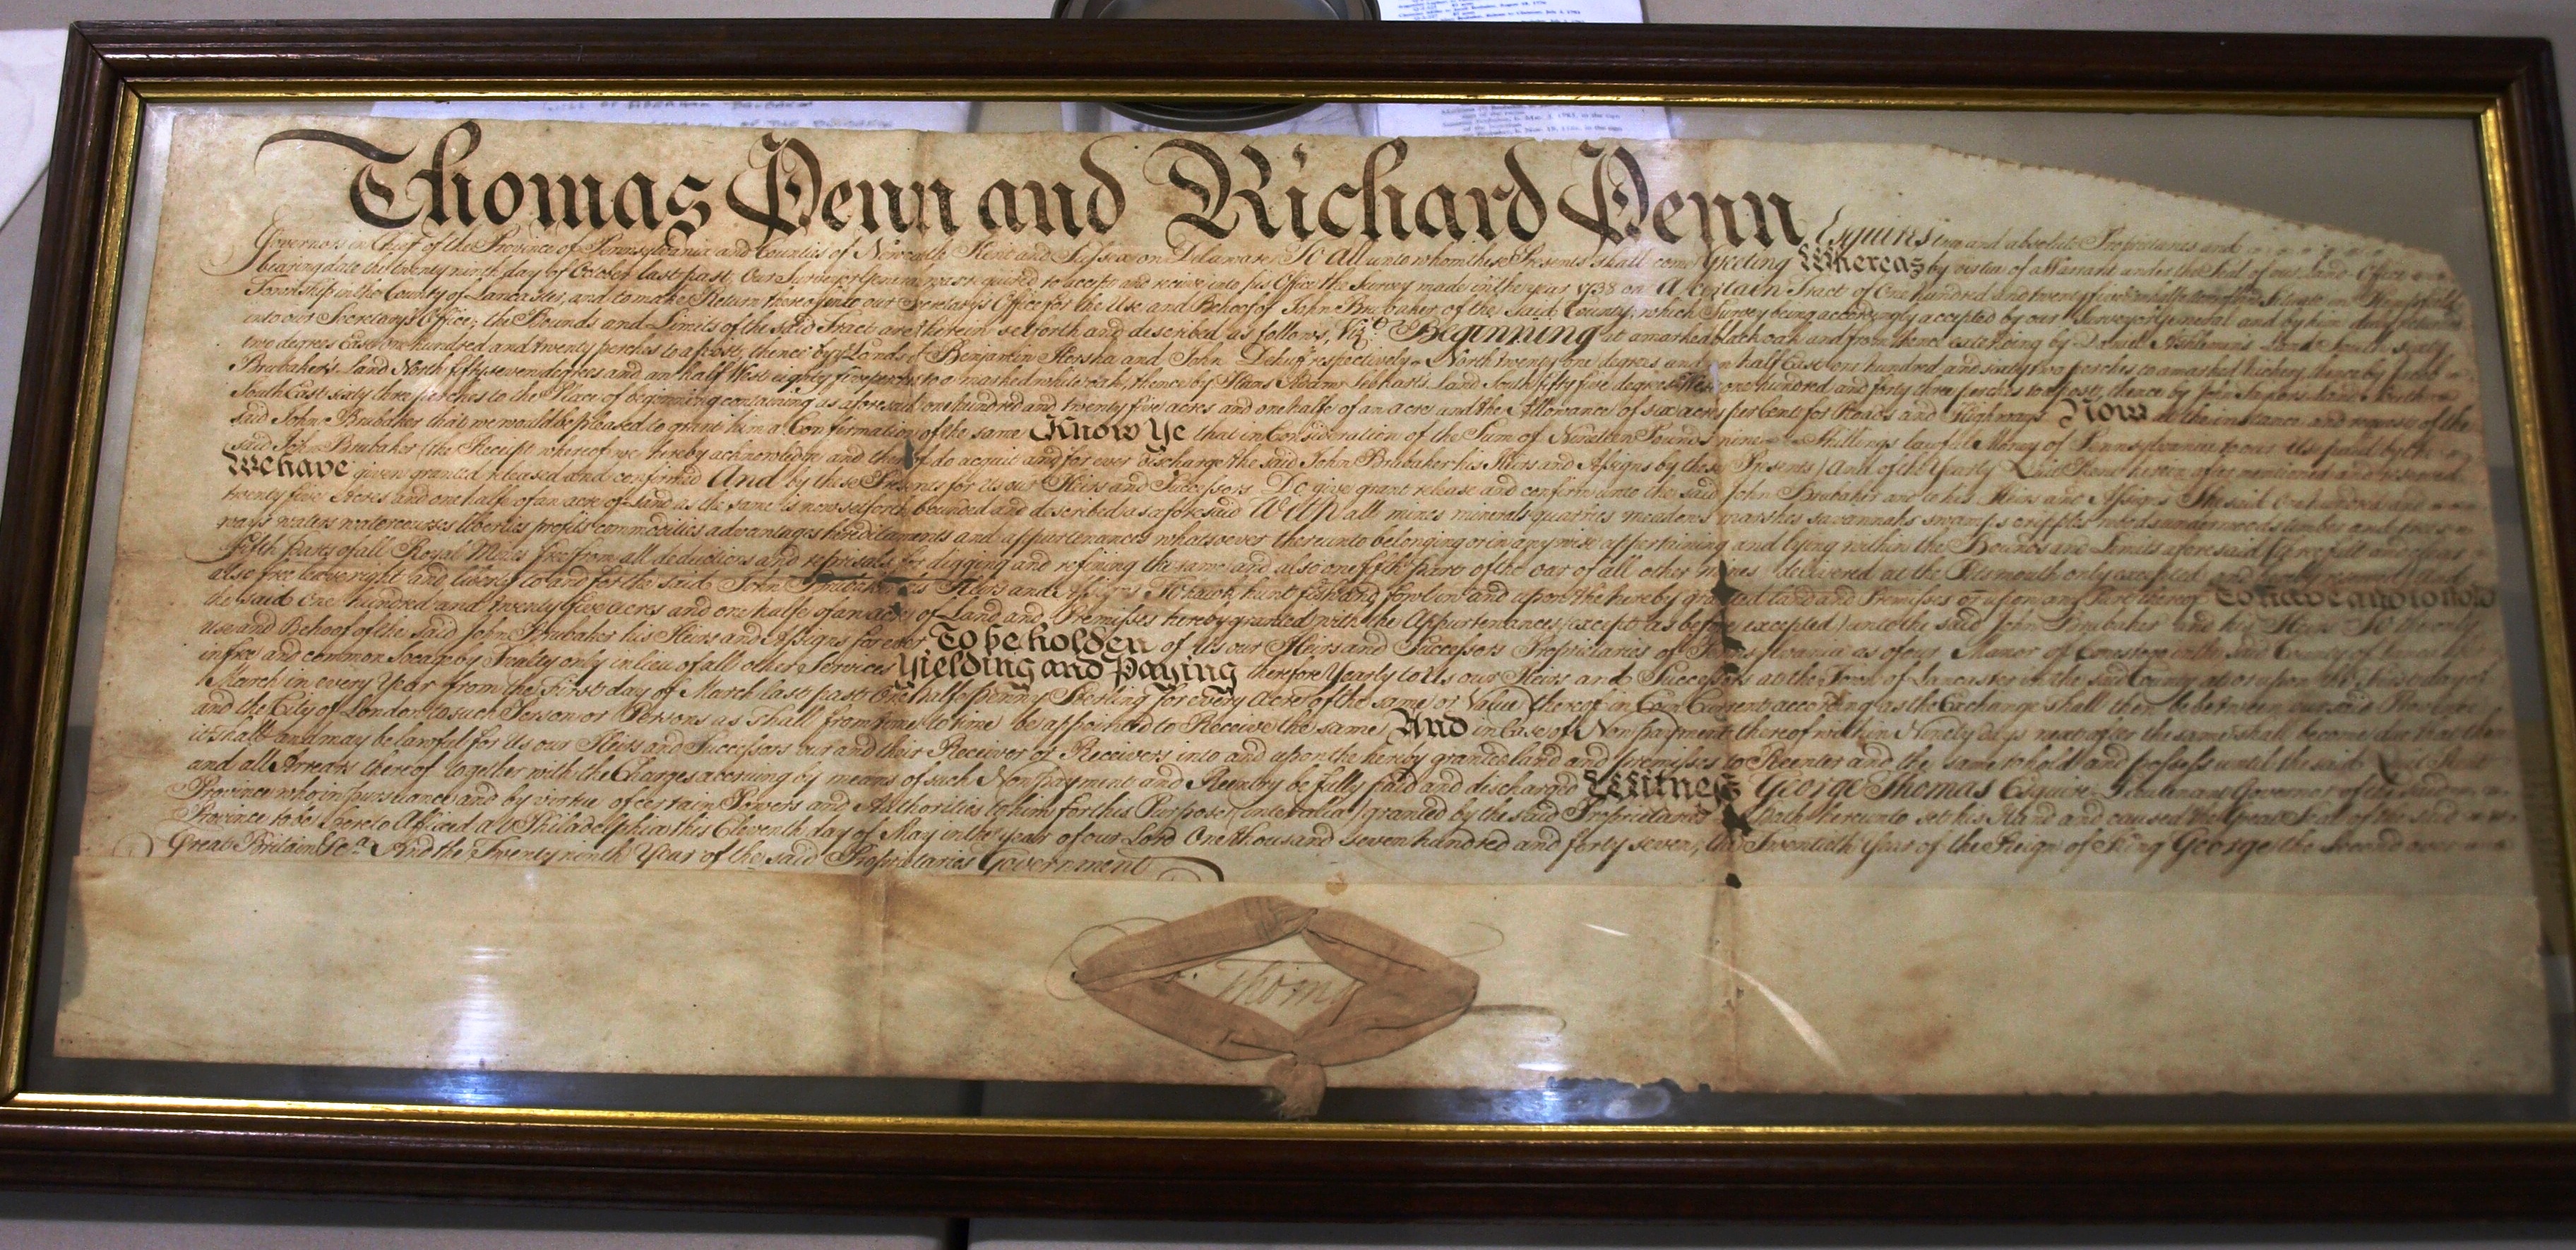 Thomas Penn and Richard Penn Esquires true and absolute Proprietaries and
Governors in Chief of the Province of Pennsylvania and Counties of Newcastle Kent and Sussex on Delaware To All unto whom these Presents shall come Greeting Whereas by virtue of a Warrant under the Seal of our Land Office
bearing date the twenty ninth day of October last past, Our Surveyor General was required to accept and receive into his Office the Survey made in the year 1738 on A certain Tract of One hundred and twenty five
Township in the County of Lancaster, and to make Return thereof into our Secretary's Office for the Use and Behoof of John Brubaker of the Said County; which Survey being accordingly accepted by our Surveyor General and by him duly returned
into our Secretary's Office; the Bounds and Limits of the said Tract are therein set forth and described as follows, Vizt. Beginning at a marked black oak and from thence extending by Land South sixty
two degrees East one hundred and twenty perches to a post, thence by ye Lands of Benjamin Hershe and John respectively North twenty one degrees and an half East one hundred and sixty two perches to a marked hickery thence by
Brubaker's Land North fifty seven degrees and an half West eighty five perches to a marked white oak, thence by Hans Adam Land South fifty five degrees West one hundred and forty three perches to a post, thence by John Land South
South East sixty three perches to the Place of beginning containing as aforesaid one hundred and twenty five acres and one halfe of an acre and the Allowance of six acres per Cent for Roads and Highways Now at the instance and request of the
said John Brubaker that we would be pleased to grant him a Confirmation of the same Know Ye that in Consideration of the Sum of Nineteen Pounds nine Shillings lawful Money of Pennsylvania to our Use paid by the
said John Brubaker (the Receipt whereof we hereby acknowledge and thereof do acquit and for ever discharge the said John Brubaker his Heirs and Assigns by these Presents) And of the Yearly Quit Rent herein after mentioned and reserved
We have given granted released and confirmed And by these Presents for Us our Heirs and Successors Do give grant release and confirm unto the said John Brubaker and to his Heirs and Assigns The said One hundred and
twenty five Acres and one halfe of an acre of Land as the same is now set forth bounded and described as aforesaid With all mines minerals quarries meadows marshes savannahs swamps cripples woods underwoods timber and trees
ways waters watercourses liberties profits commodities advantages hereditaments and appurtenances whatsoever thereunto belonging or in any wise appertaining and lying within the Bounds and Limits aforesaid
Fifth parts of all Royal Mines free from all deductions and reprisals for digging and refining the same and also one fifth part of the oar of all other mines delivered at the Pits mouth only excepted and hereby reserved And
also free leave right and liberty to and for the said John Brubaker his Heirs and Assigns To hawk hunt fish and fowl in and upon the hereby granted Land and Premisses or upon any Part thereof To have and to hold
the said One hundred and twenty five acres and one halfe of an acre of Land and Premisses hereby granted with the Appurtenances (except as before excepted) unto the said John Brubaker and his Heirs To the only
use and Behoof of the said John Brubaker his Heirs and Assigns for ever To be holden of Us our Heirs and Successors Proprietaries of Pennsylvania as of our Manor of Conestogo in the said County of Lancaster
in free and common Socage by Fealty only in lieu of all other Services Yielding and Paying therefore Yearly to Us our Heirs and Successors at the Town of Lancaster in the said County at or upon the first day of
March in every Year from the First day of March last past One half penny Sterling for every Acre of the same, or Value thereof in Coin Current according as the Exchange shall then be between our said Province
and the City of London to such Person or Persons as shall from time to time be appointed to Receive the same And in Case of Non payment thereof within Ninety days next after the same shall become due that then
it shall and may be lawful for Us our Heirs and Successors our and their Receiver or Receivers into and upon the hereby granted land and premisses to Reenter and the same to hold and possess until the said Quit Rent
and all Arrears thereof together with the Charges accruing by means of such Non payment and Reentry be fully paid and discharged Witness George Thomas Esquire Lieutenant Governor of the said
Province who in pursuance and by virtue of certain Powers and Authorities to him for this Purpose (inter alia) granted by the said Proprietaries hath hereunto set his Hand and caused the Great Seal of the said
Province to be hereto Affixed at Philadelphia this Eleventh day of May in the Year of our Lord One thousand seven hundred and forty seven, the Twentieth Year of the Reign of King George the Second over
Great Britain &c.a And the Twenty ninth Year of the said Proprietaries Government
Thomas